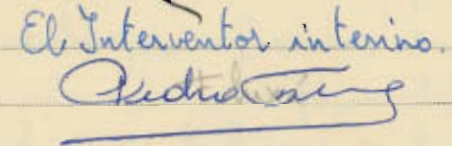 El Interventor interino.
Pedro